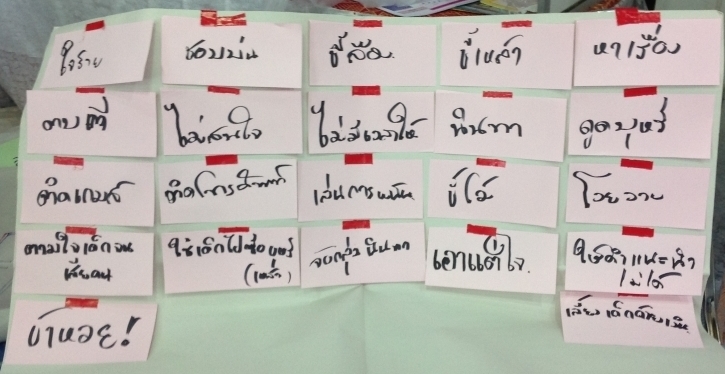 ใจร้าย
ชอบบ่น
ขี้ลืม
ขี้เหล้า
หาเรื่อง
ตบตี
ไม่สนใจ
ไม่มีเวลาให้
นินทา
ดูดบุหรี่
ติดเกมส์
ติดโทรศัพท์
เล่นการพนัน
ขี้โม้
โวยวาย
ตามใจเด็กจน
เสียคน
ใช้เด็กไปซื้อบุหรี่
(เหล้า)
จับกลุ่มนินทา
เอาแต่ใจ.
ให้คำแนะนำ
ไม่ได้
เลี้ยงเด็กด้วยเงิน
ขาหวย!